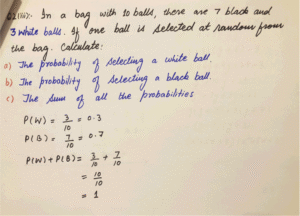 Q2(iii):- In a bag with 10 balls, there are 7 black and
3 white balls. If one ball is selected at random from
the bag. Calculate:
a) The probability of selecting a white ball.
b) The probability of selecting a black ball.
c) The sum of all the probabilities
P(W) = 3/10 = 0.3
P(B) = 7/10 = 0.7
P(W) + P(B) = 3/10 + 7/10
= 10/10
= 1